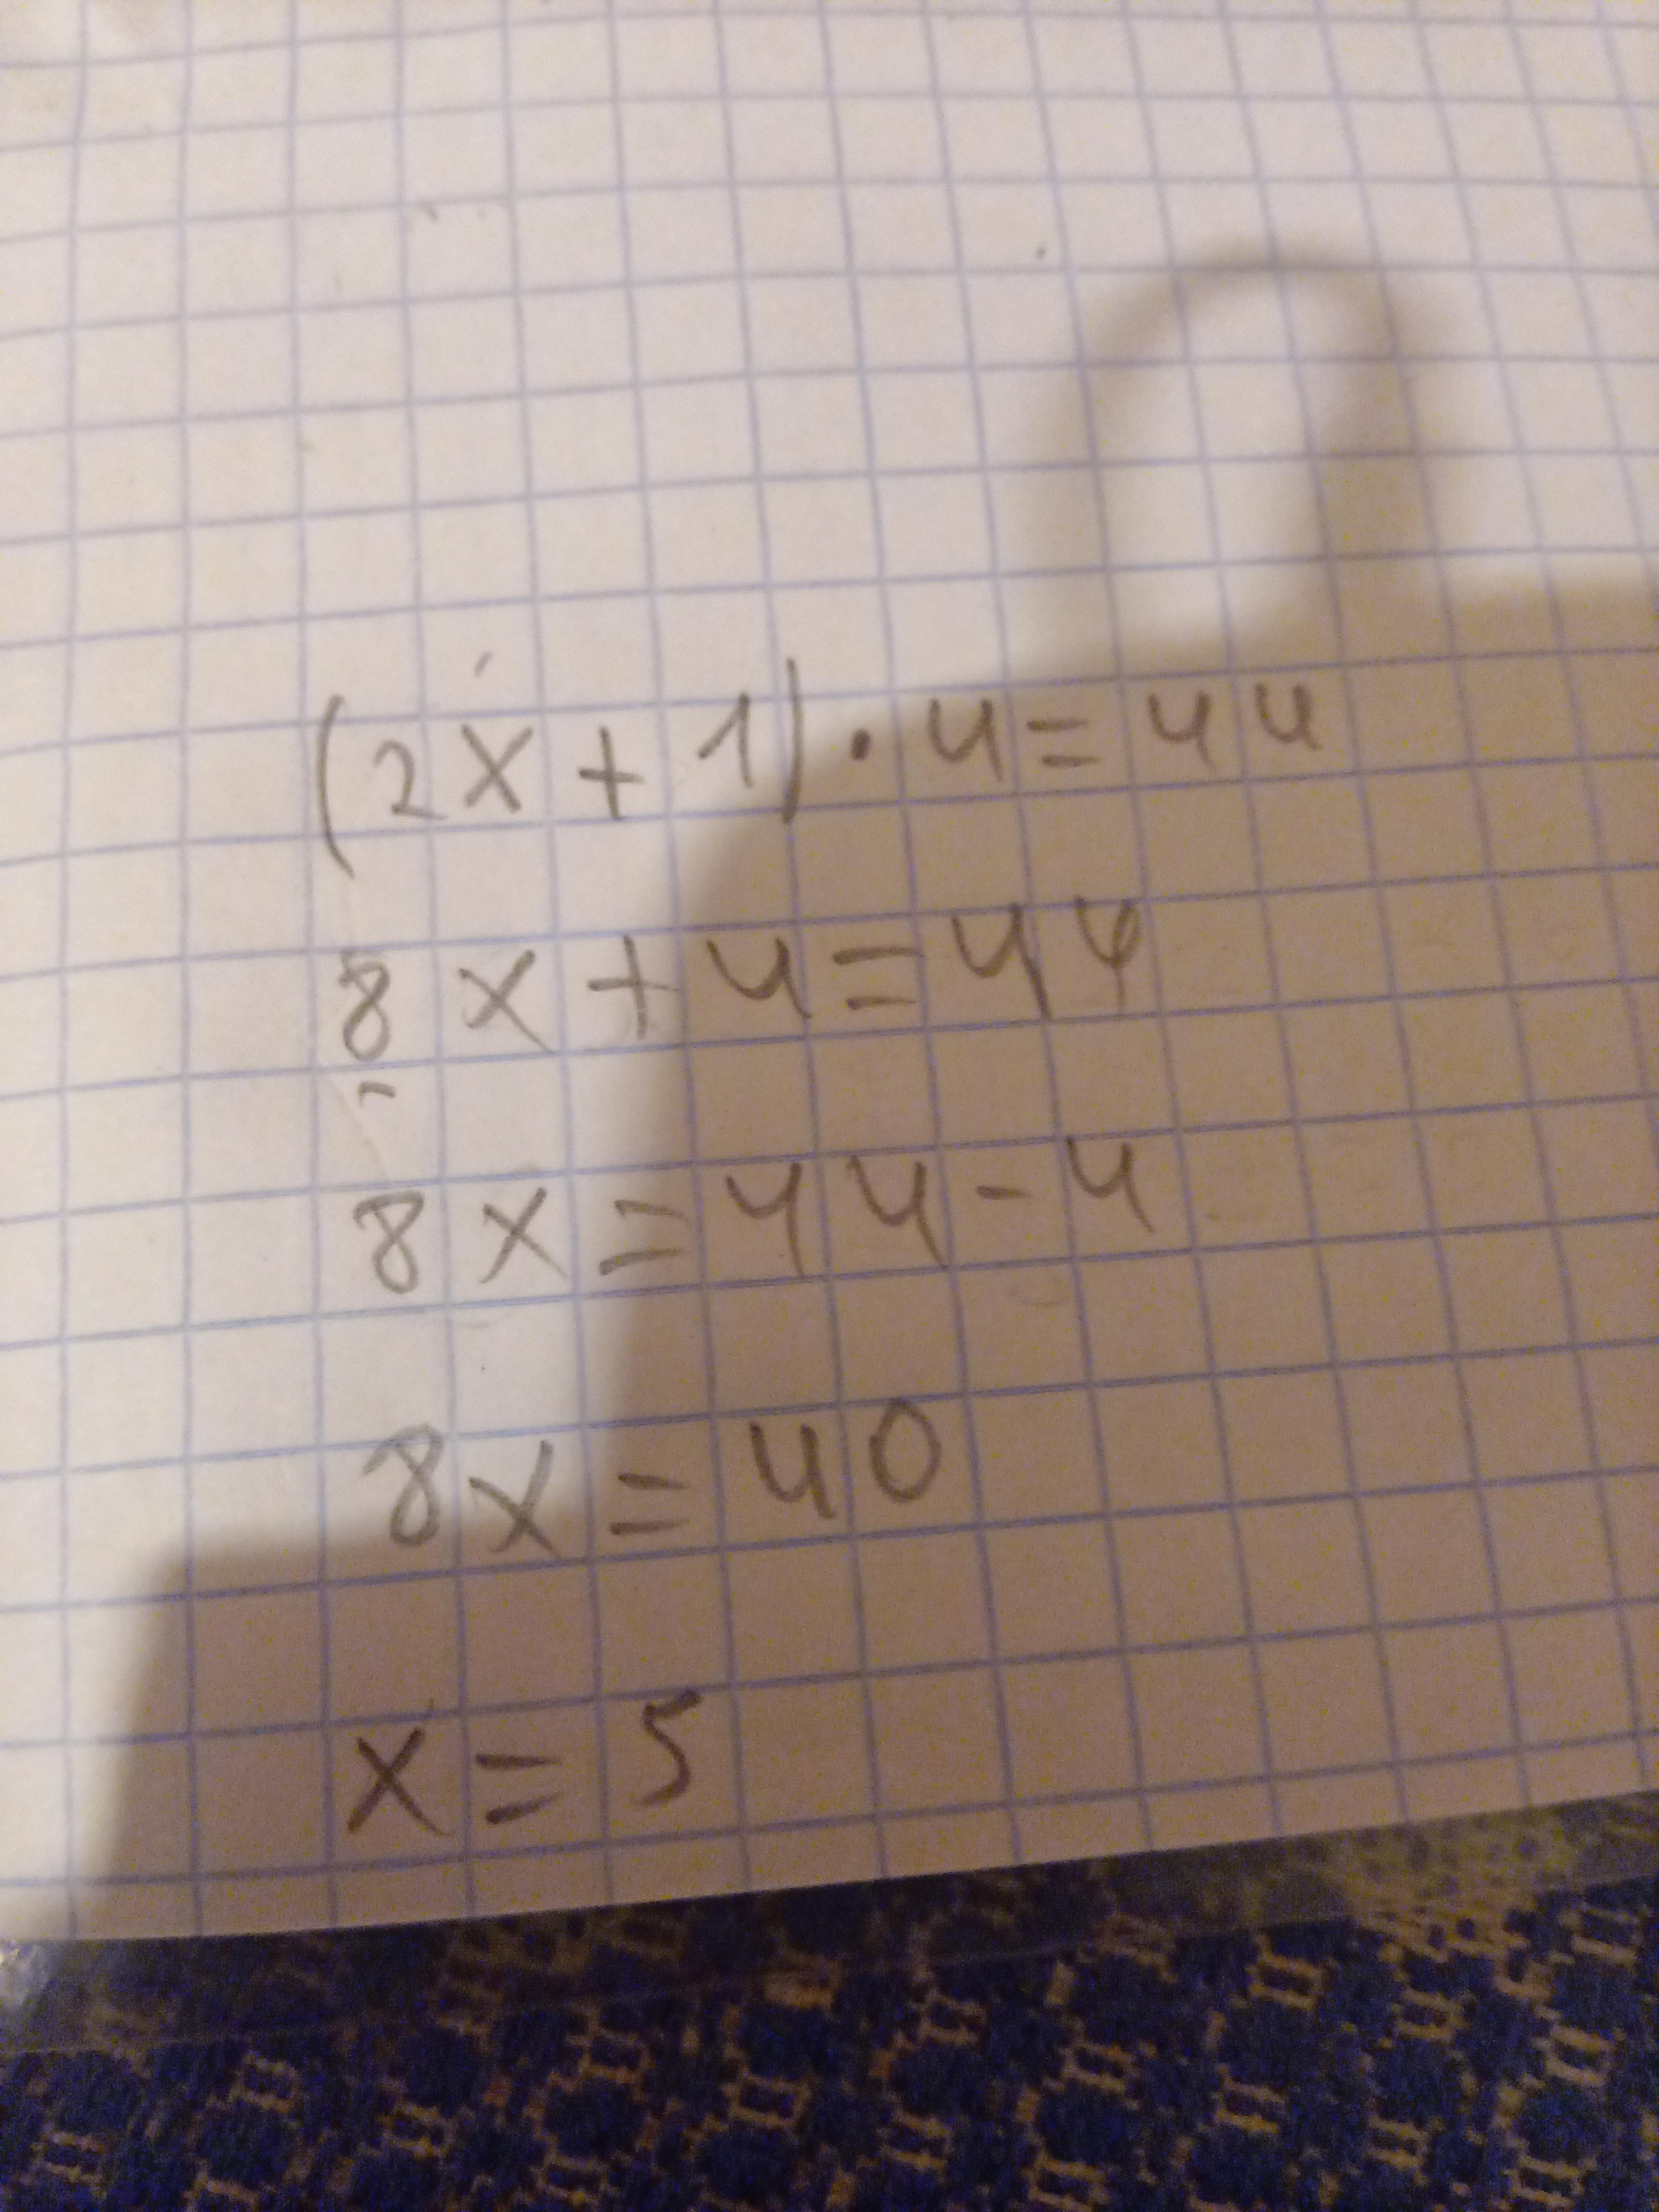 (2x + 1) • 4 = 44
8x + 4 = 44
8x = 44 - 4
8x = 40
x = 5